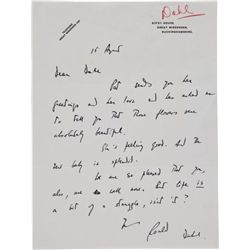 Dahl
GIPSY HOUSE,
GREAT MISSENDEN,
BUCKINGHAMSHIRE.
15 August
Dear
Pat sends you her
greetings and her love and has asked me
to tell you that those flowers were
absolutely beautiful.
She's feeling good. And the
new baby is splendid.
We are so pleased that you,
also, are well now. But life is
a bit of a struggle, isn't it?
Roald Dahl